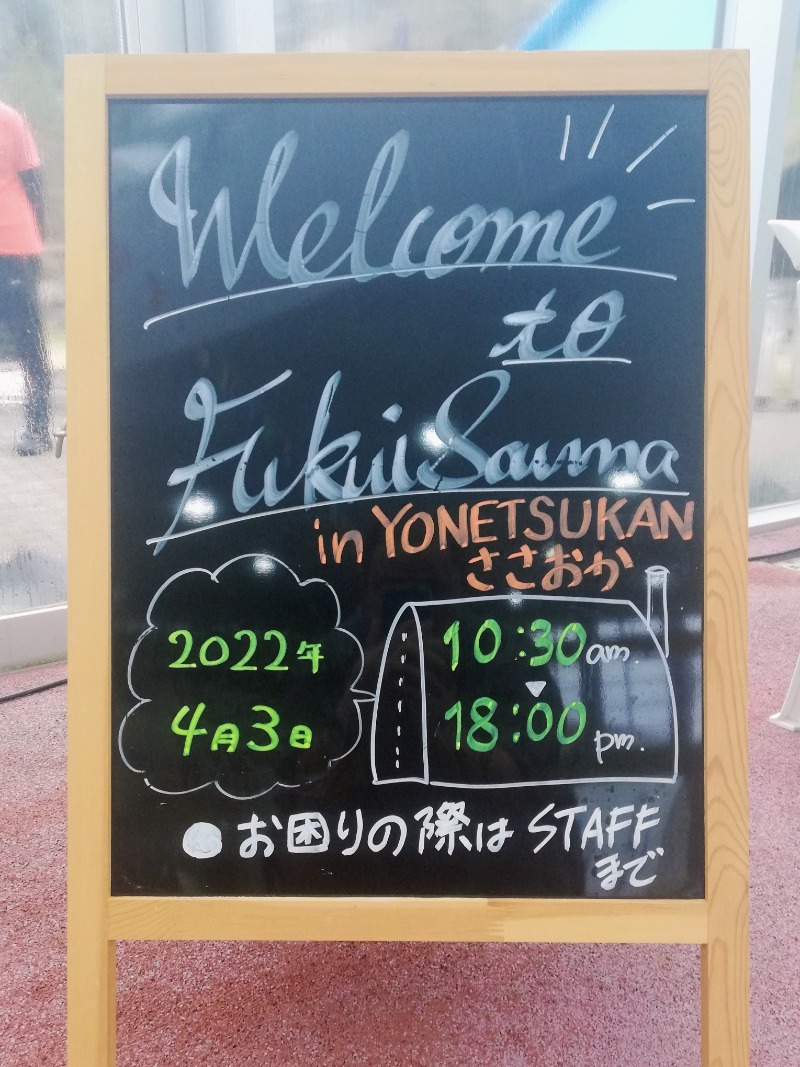 Welcome
to
Fukui Sauna
in YONETSUKAN
ささおか
2022年
4月3日
10:30 am.
18:00 pm.
お困りの際は STAFF
まで